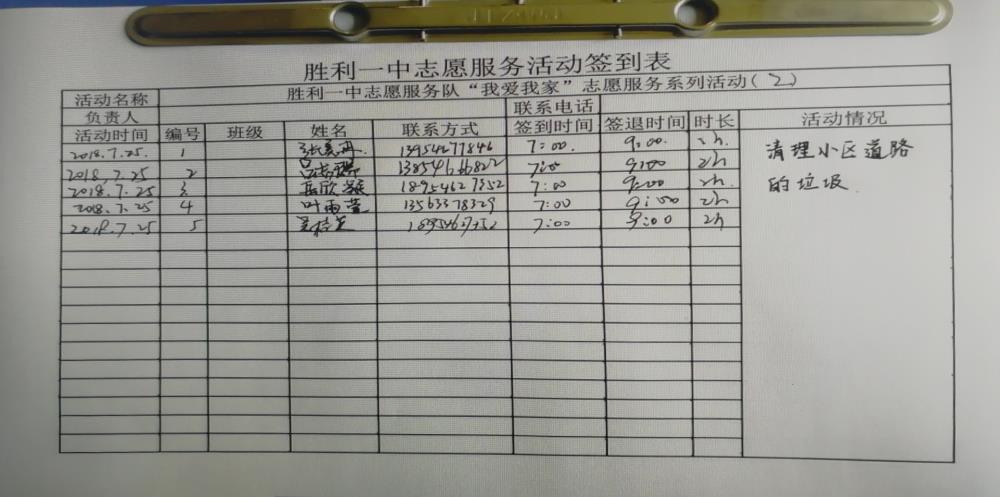 胜利一中志愿服务活动签到表
活动名称 胜利一中志愿服务队“我爱我家”志愿服务系列活动(2)
负责人 联系电话
活动时间 编号 班级 姓名 联系方式 签到时间 签退时间 时长 活动情况
2018.7.25. 1 13954277846 7:00. 9:00. 2h. 清理小区道路
2018.7.25 2 13854666822 7:00 9:00 2h
2018.7.25 3 18954627352 7:00 9:00 2h. 的垃圾.
2018.7.25 4 叶雨萱 13563378329 7:00 9:00 2h
2018.7.25 5 7:00 9:00 2h